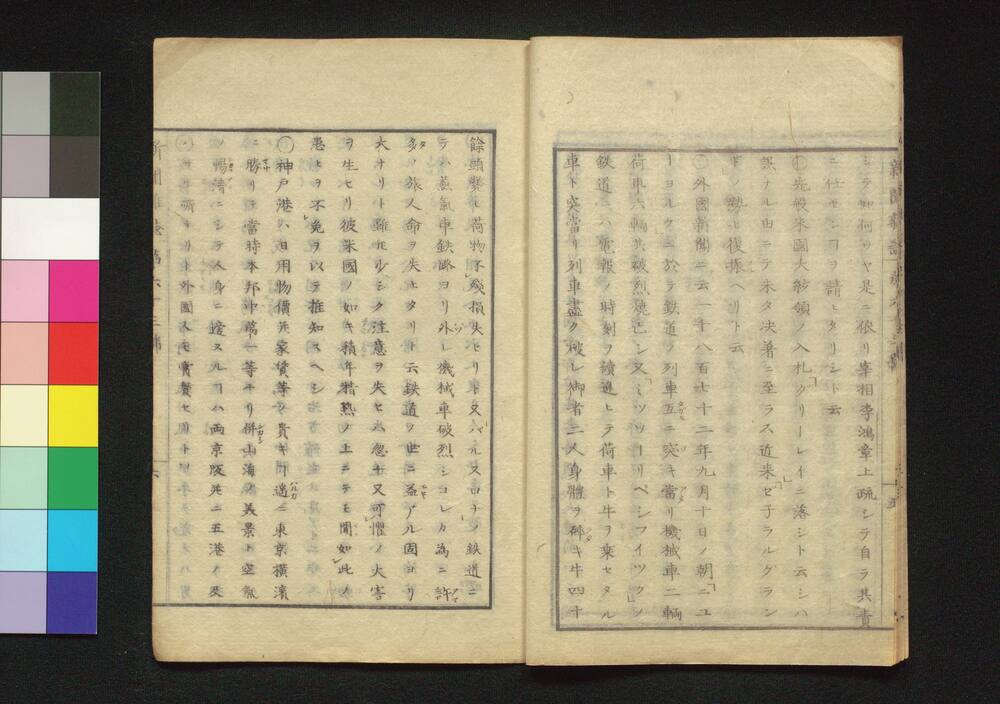 シテ如何ソヤ是ニ依リ宰相李鴻章上疏シテ自ラ其責
ニ任センヿヲ請ヒタリシト云
〇先般米國大統領ノ入札クリーレイニ落シト云シハ
誤ナル由ニテ未タ決著ニ至ラス近来ゼ子ラルグラン
ト ノ勢ヒ復振ヘリト云
〇外國新聞ニ云一千八百七十二年九月十日ノ朝ニユ
ーヨルクニ於テ鉄道ノ列車互ニ突キ當リ機械車二輌
荷車六輌共破烈燒亡シ又ミツソーリペシフイツクノ
鉄道ニハ電報ノ時刻ヲ讀違ヒテ荷車ト牛ヲ乗セタル
車ト突當リ列車盡ク破レ御者二人身體ヲ碎キ牛四十
餘頭斃レ荷物不殘損失セリ又バルスロナノ鉄道ニ
テハ蒸氣車鉄路ヨリ外レ機械車破烈シコレカ為ニ許
多ノ旅人命ヲ失ヒタリト云鉄道ノ世ニ益アル固ヨリ
大ナリト雖モ少シク注意ヲ失セハ忽チ又可懼ノ大害
ヲ生セリ彼米國ノ如キ積年習熟ノ上ニテモ間如此ノ
患ヒヲ不免ヲ以テ推知スヘシ
〇神戸港ハ日用物價并家賃等ノ貴キヿ遥ニ東京横濱
ニ勝リ當時本邦中第一等ナリ併山海ノ美景ト空氣
ノ暢清ニシテ人身ニ
新聞雑誌第六十三號